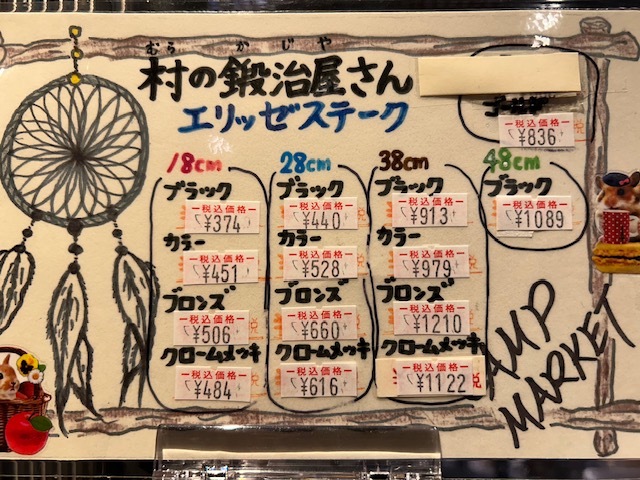 むら かじや
村の鍛冶屋さん
エリッゼステーク
ゴールド
税込価格
¥836
18cm
ブラック
税込価格
¥374
カラー
税込価格
¥451
ブロンズ
税込価格
¥506
クロームメッキ
税込価格
¥484
28cm
ブラック
税込価格
¥440
カラー
税込価格
¥528
ブロンズ
税込価格
¥660
クロームメッキ
税込価格
¥616
38cm
ブラック
税込価格
¥913
カラー
税込価格
¥979
ブロンズ
税込価格
¥1210
クロームメッキ
税込価格
¥1122
48cm
ブラック
税込価格
¥1089
AMP
MARKET